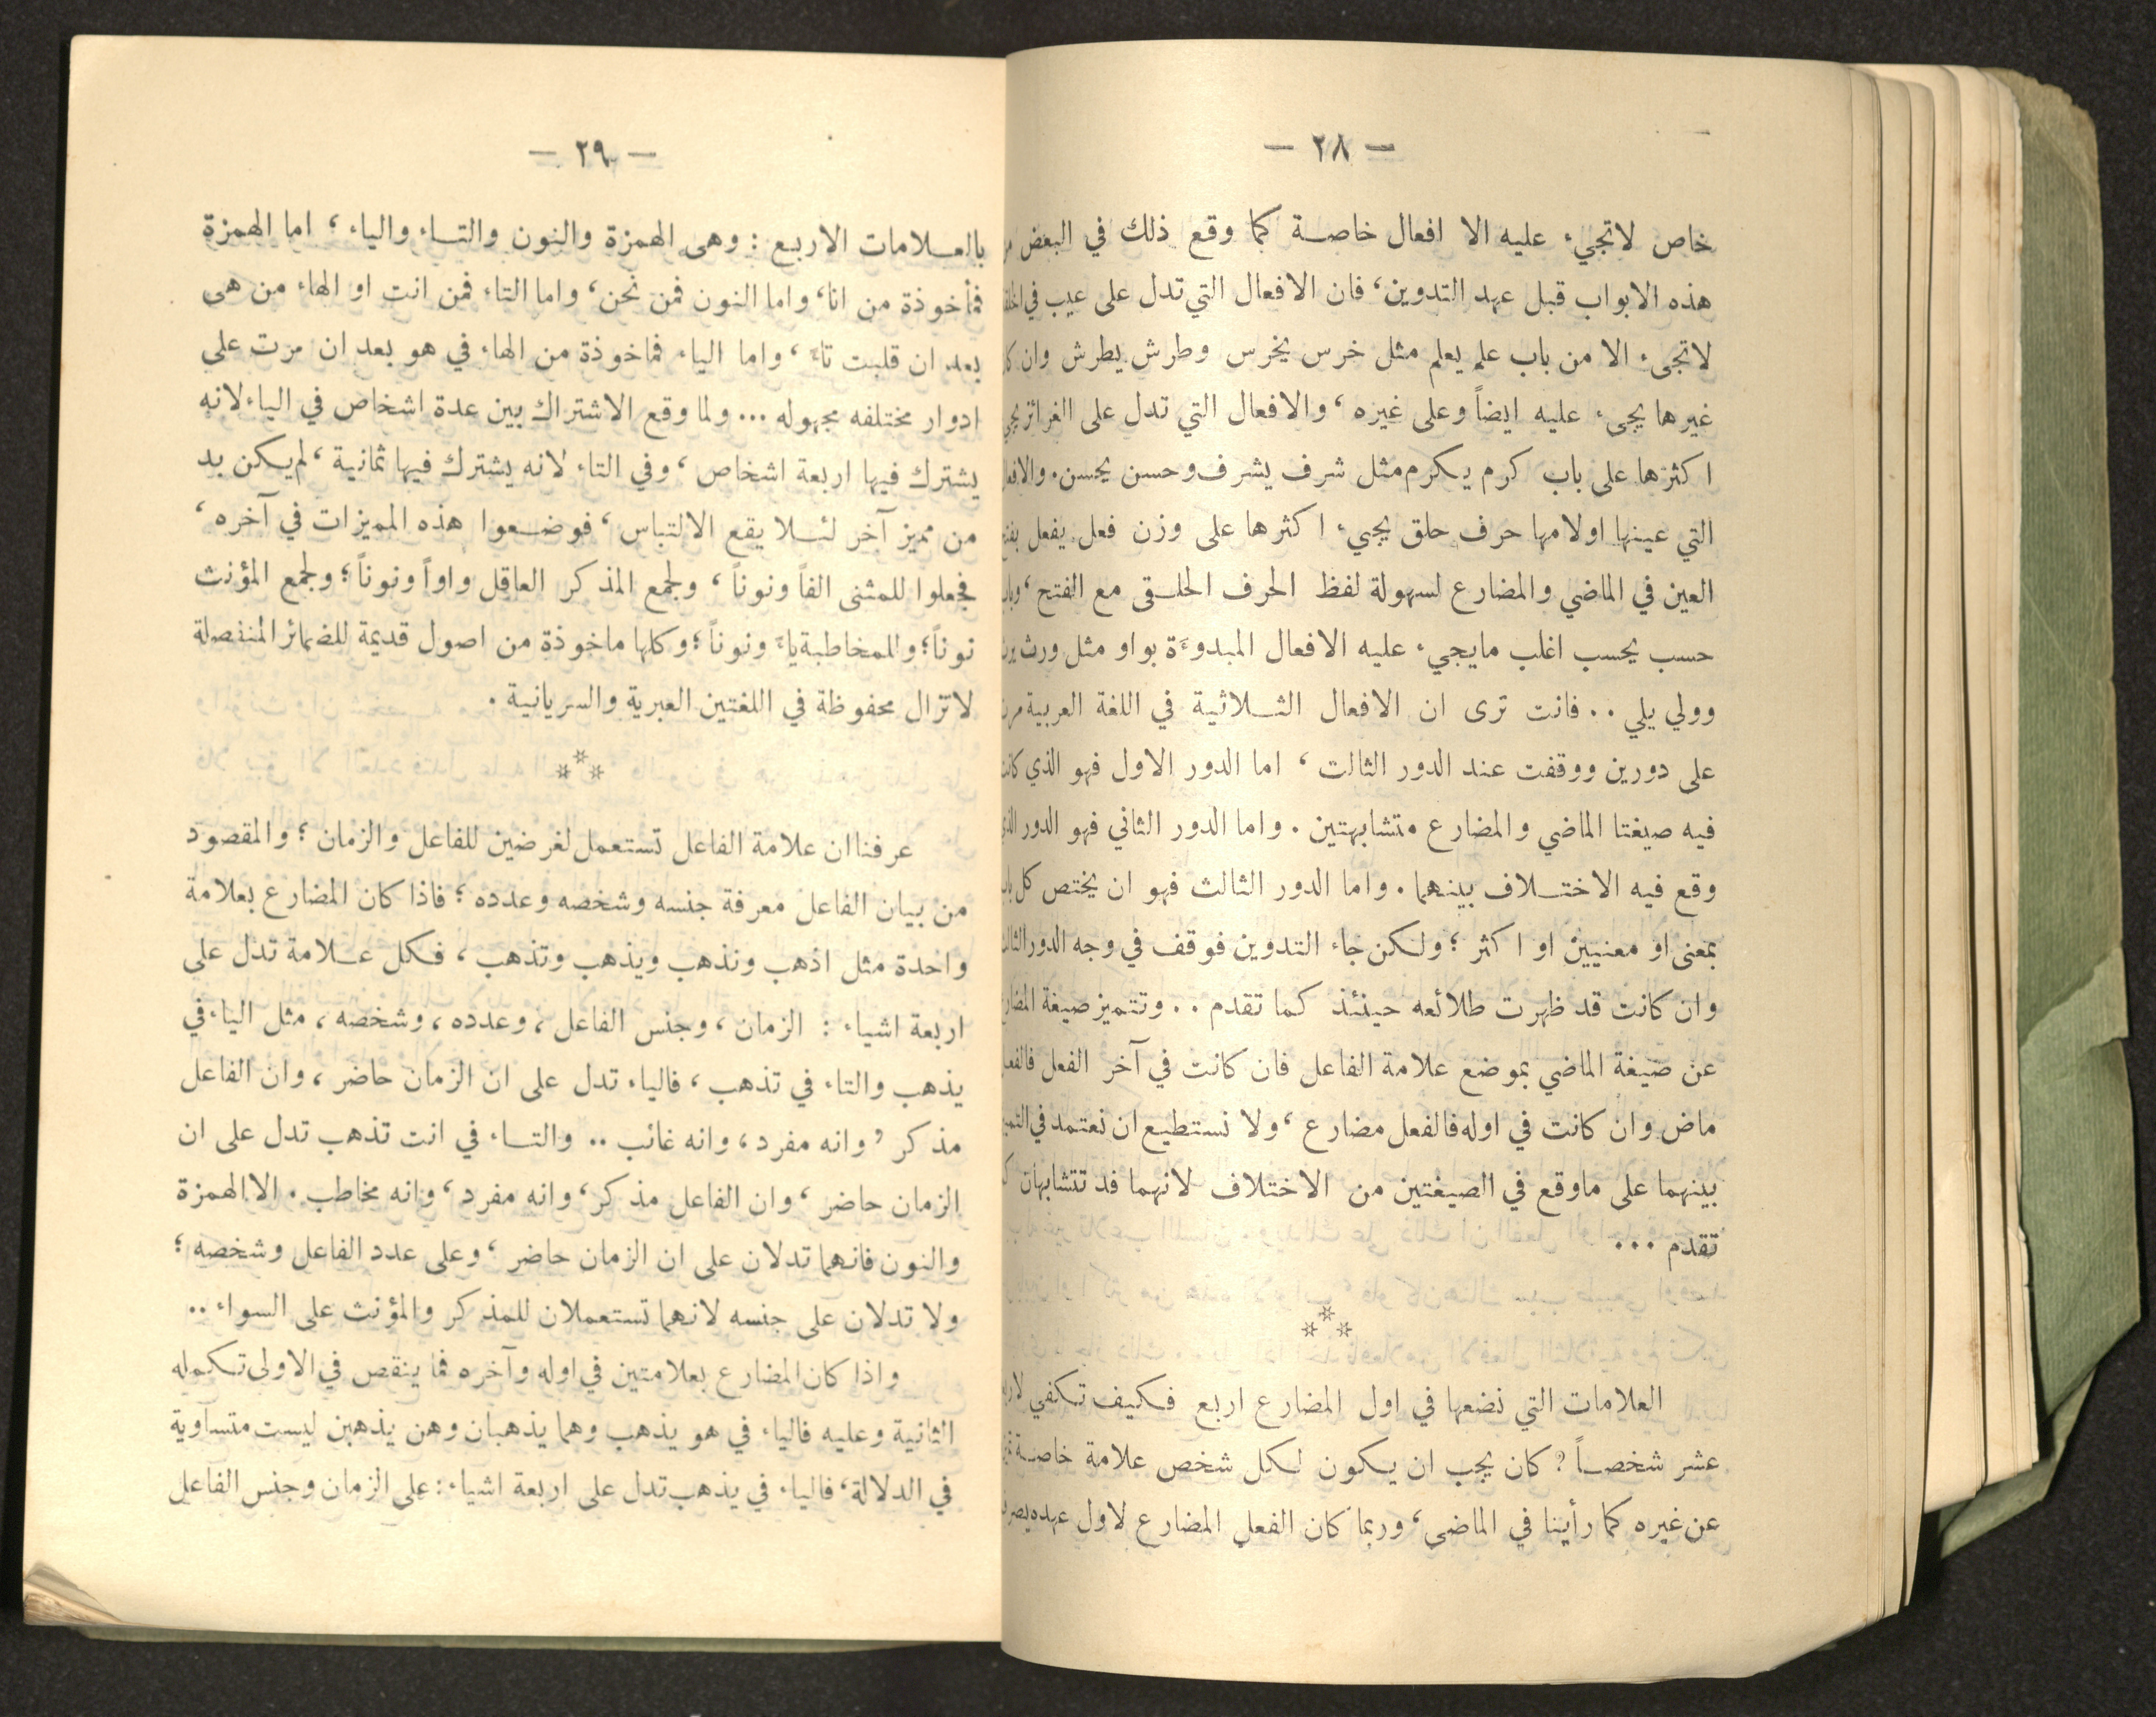 — ٢٨ —
خاص لاتجيء عليه الا افعال خاصة كما وقع ذلك في البعض
هذه الابواب قبل عهد التدوين، فان الافعال التي تدل على عيب في
لاتجيء الا من باب علم يعلم مثل خرس يخرس وطرش يطرش وان
غيرها يجيء عليه ايضاً وعلى غيره، والافعال التي تدل على الغرائز
اكثرها على باب كرم يكرم مثل شرف يشرف وحسن يحسن. والافعال
التي عينها اولامها حرف حلق يجيء اكثرها على وزن فعل يفعل
العين في الماضي والمضارع لسهولة لفظ الحرف الحلقى مع الفتح،
حسب يحسب اغلب مايجيء عليه الافعال المبدوءة بواو مثل ورث
وولي يلي .. فانت ترى ان الافعال الثلاثية في اللغة العربية
على دورين ووقفت عند الدور الثالث، اما الدور الاول فهو الذي
فيه صيغتا الماضي والمضارع متشابهتين. واما الدور الثاني فهو الدور
وقع فيه الاختلاف بينهما. واما الدور الثالث فهو ان يختص كل
بمعنى او معنيين او اكثر؛ ولكن جاء التدوين فوقف في وجه الدور
وان كانت قد ظهرت طلائعه حينئذ كما تقدم .. وتتميز صيغة
عن صيغة الماضي بموضع علامة الفاعل فان كانت في آخر الفعل
ماض وان كانت في اوله فالفعل مضارع، ولا نستطيع ان نعتمد في
بينهما على ماوقع في الصيغتين من الاختلاف لانهما قد تتشابهان
تقدم ...
***
العلامات التي نضعها في اول المضارع اربع فكيف تكفي
عشر شخصاً؟ كان يجب ان يكون لكل شخص علامة خاصة
عن غيره كما رأينا في الماضى، وربما كان الفعل المضارع لاول عهده
— ٢٩ —
بالعلامات الاربع: وهى الهمزة والنون والتاء والياء؛ اما الهمزة
فمأخوذة من انا، واما النون فمن نحن، واما التاء فمن انت او الهاء من هى
بعد ان قلبت تاءً، واما الياء فماخوذة من الهاء في هو بعد ان مرت على
ادوار مختلفه مجهوله ... ولما وقع الاشتراك بين عدة اشخاص في الياء لانه
يشترك فيها اربعة اشخاص، وفي التاء لانه يشترك فيها ثمانية، لم يكن بد
من مميز آخر لئلا يقع الالتباس، فوضعوا هذه المميزات في آخره،
فجعلوا للمثنى الفاً ونوناً، ولجمع المذكر العاقل واواً ونوناً؛ ولجمع المؤنث
نوناً؛ وللمخاطبة ياءً ونوناً؛ وكلها ماخوذة من اصول قديمة للضمائر المنفصلة
لاتزال محفوظة في اللغتين العبرية والسريانية.
***
عرفنا ان علامة الفاعل تستعمل لغرضين للفاعل والزمان؛ والمقصود
من بيان الفاعل معرفة جنسه وشخصه وعدده؛ فاذا كان المضارع بعلامة
واحدة مثل اذهب ونذهب ويذهب وتذهب، فكل علامة تدل على
اربعة اشياء: الزمان، وجنس الفاعل، وعدده، وشخصه، مثل الياء في
يذهب والتاء في تذهب، فالياء تدل على ان الزمان حاضر، وان الفاعل
مذكر، وانه مفرد، وانه غائب .. والتاء في انت تذهب تدل على ان
الزمان حاضر، وان الفاعل مذكر، وانه مفرد، وانه مخاطب. الا الهمزة
والنون فانهما تدلان على ان الزمان حاضر، وعلى عدد الفاعل وشخصه؛
ولا تدلان على جنسه لانهما تستعملان للمذكر والمؤنث على السواء ..
واذا كان المضارع بعلامتين في اوله وآخره فما ينقص في الاولى تكمله
الثانية وعليه فالياء في هو يذهب وهما يذهبان وهن يذهبن ليست متساوية
في الدلالة، فالياء في يذهب تدل على اربعة اشياء: على الزمان وجنس الفاعل